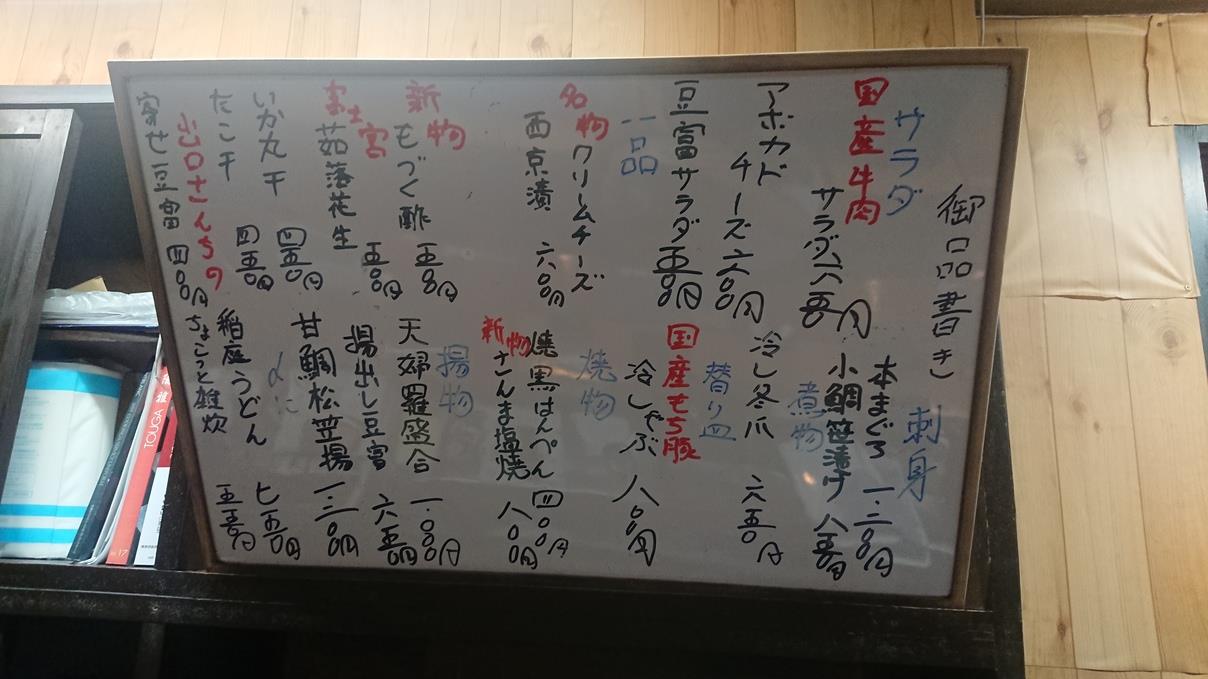 御品書き
サラダ
国産牛肉
サラダ
アボカド
チーズ 六〇〇円
豆富サラダ 五〇〇円
一品
名物クリームチーズ
西京漬 六〇〇円
新物
もづく酢 五〇〇円
富士宮
茹落花生 五〇〇円
いか丸干 四五〇円
たこ干 四五〇円
出口さんちの
寄せ豆富 四〇〇円
刺身
本まぐろ
小鯛笹漬け 八五〇円
煮物
冷し冬瓜 六五〇円
替り皿
国産もち豚
冷しゃぶ 八〇〇円
焼物
焼黒はんぺん 四〇〇円
新物さんま塩焼 八〇〇円
揚物
天婦羅盛合 一、〇〇〇円
揚出し豆富 六五〇円
甘鯛松笠揚
〆に
稲庭うどん 七五〇円
ちょこっと雑炊 五五〇円
TOUGA